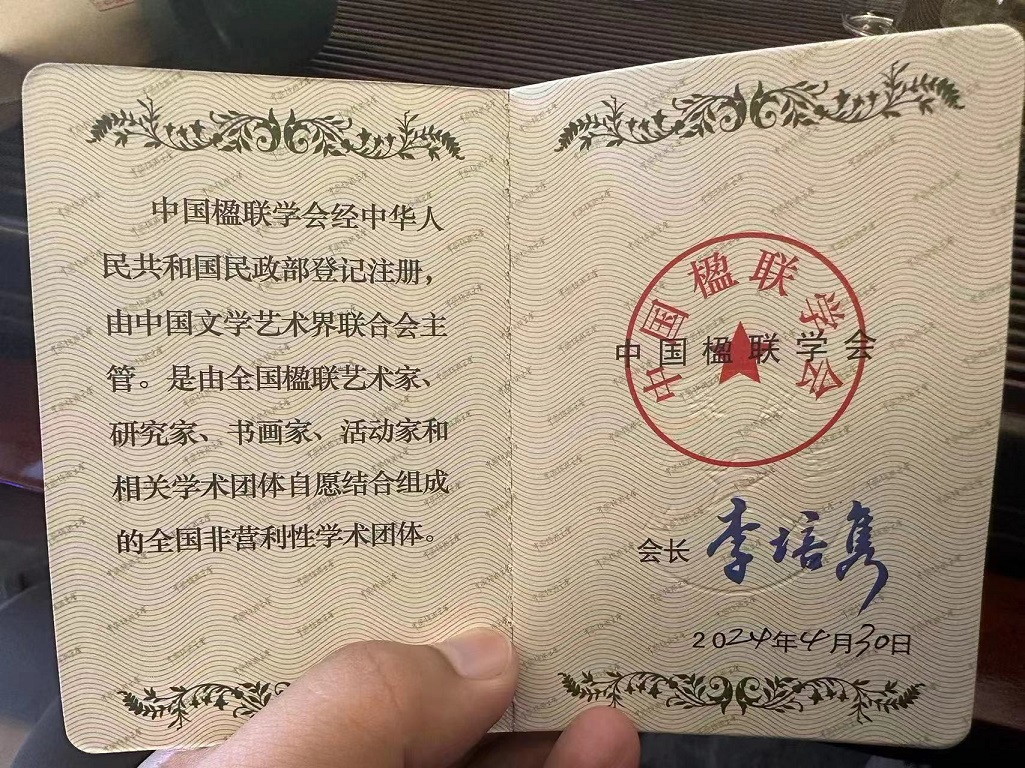 中国楹联学会经中华人
民共和国民政部登记注册，
由中国文学艺术界联合会主
管。是由全国楹联艺术家、
研究家、书画家、活动家和
相关学术团体自愿结合组成
的全国非营利性学术团体。
中国楹联学会
中国楹联学会
会长 李培隽
2024年4月30日